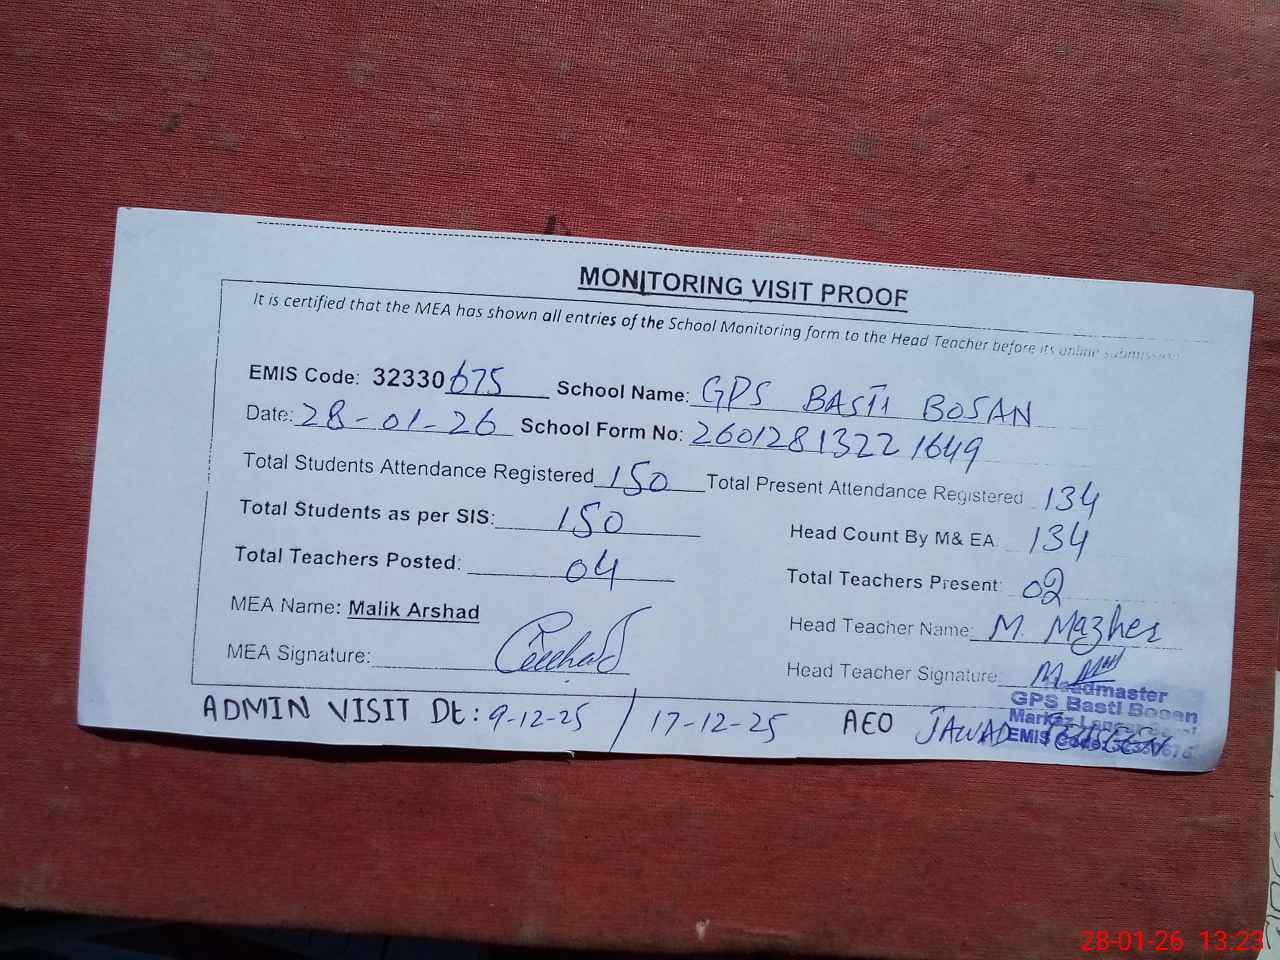 MONITORING VISIT PROOF
It is certified that the MEA has shown all entries of the School Monitoring form to the Head Teacher before its online submission
EMIS Code: 32330675 School Name: GPS BASTI BOSAN
Date: 28-01-26 School Form No: 2601281322 1649
Total Students Attendance Registered 150 Total Present Attendance Registered 134
Total Students as per SIS: 150 Head Count By M& EA 134
Total Teachers Posted: 04 Total Teachers Present: 02
MEA Name: Malik Arshad Head Teacher Name: M. Mazher
MEA Signature: Head Teacher Signature: M.
ADMIN VISIT Dt: 9-12-25 / 17-12-25 AEO JAWAD
Headmaster
GPS Basti Bosan
Markaz
EMIS Code:
28-01-26 13:23